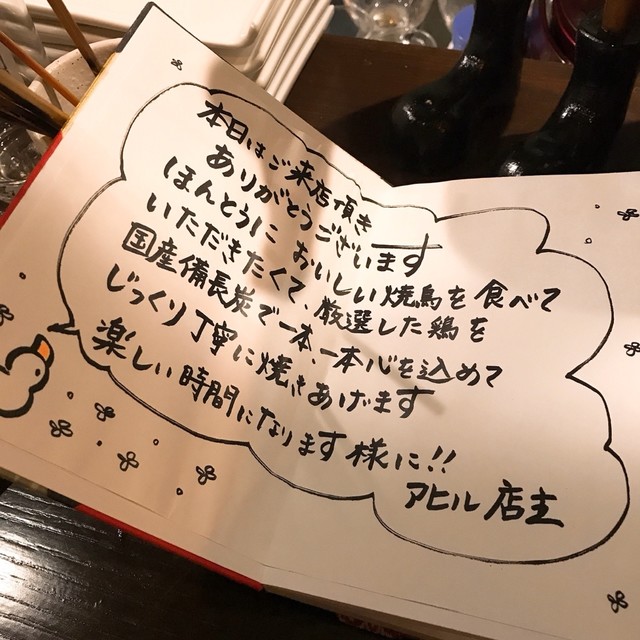 本日はご来店頂き
ありがとうございます
ほんとうに おいしい焼鳥を食べて
いただきたくて、厳選した鶏を
国産備長炭で一本、一本心を込めて
じっくり丁寧に焼きあげます
楽しい時間になります様に!!
アヒル店主